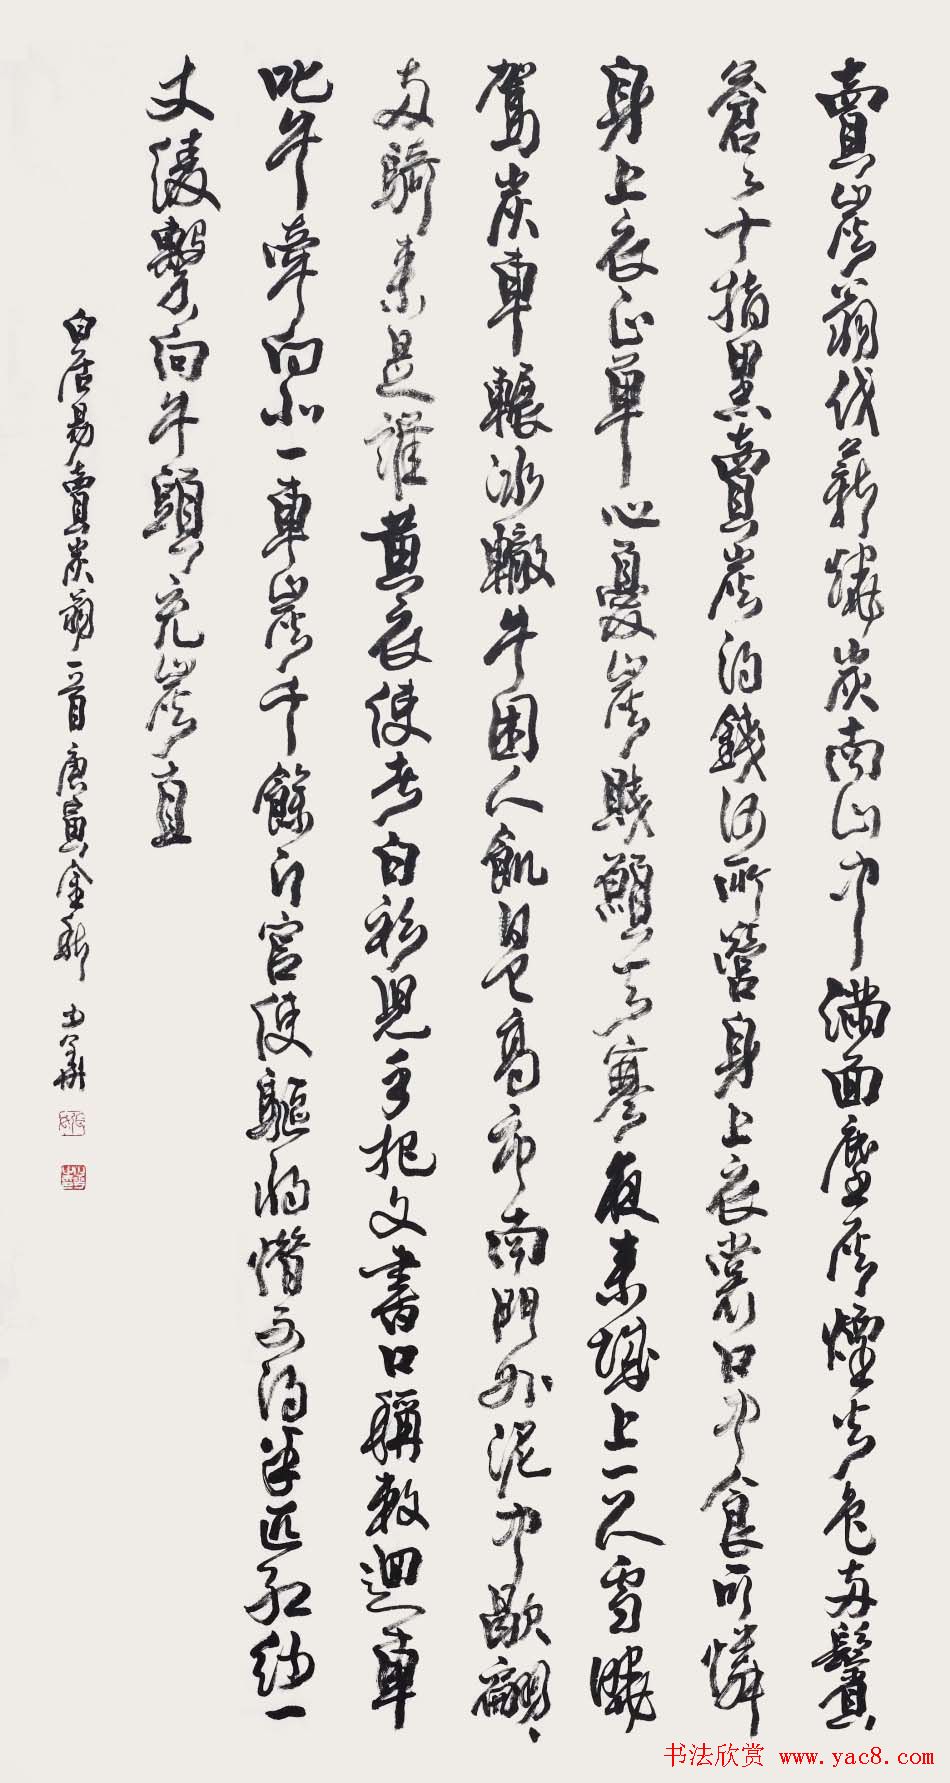 賣炭翁伐薪燒炭南山中滿面塵灰煙火色兩鬢
蒼々十指黑賣炭得錢何所營身上衣裳口中食可憐
身上衣正單心憂炭賤願天寒夜來城上一尺雪曉
駕炭車輾冰轍牛困人飢日已高市南門外泥中歇翩々
兩騎來是誰黃衣使者白衫兒手把文書口稱敕迴車
叱牛牽向北一車炭千餘斤宮使驅將惜不得半匹紅紗一
丈綾繫向牛頭充炭直
白居易賣炭翁一首 庚寅金秋
书法欣赏 www.yac8.com